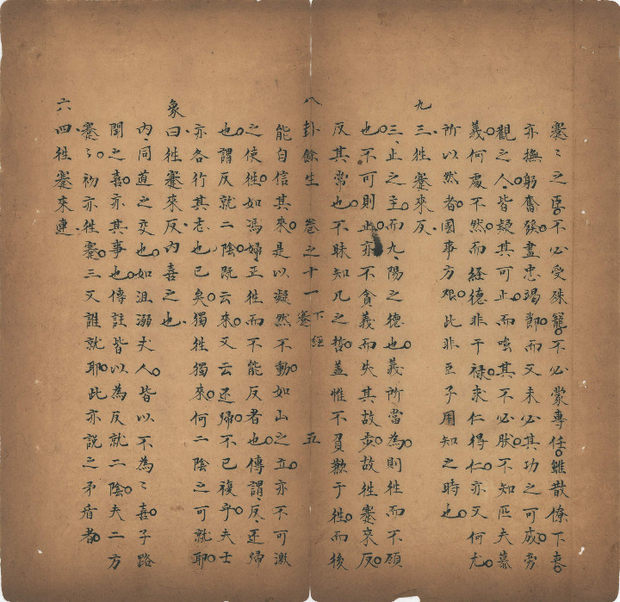 蹇〻之臣不必受殊寵不必蒙專任雖散僚下吏
亦撫躬奮發盡忠竭節而又未必其功之可成旁
觀之人皆疑其可止而嗤其不必然不知匹夫慕
義何處不然而經德非干祿求仁得仁亦又何尤
所以然者國事方艱此非臣子用知之時也
九三往蹇來反
三止之主而九陽之德也義所當為則往而不顧
也不可則止亦不貪義而失其故步故往蹇來反
反其常也不昧知凡之哲蓋惟不貿歎于往而後
八卦餘生 卷之十一 下經 蹇 五
能自信其來是以凝然不動如山之立亦不可激
之使往如馮婦正往而不能反者也傳謂反還歸
也謂反就二陰既云來又云還歸不已複乎夫士
亦各行其志也已矣獨往獨來何二陰之可就耶
象曰往蹇來反內喜之也
內同道之交也如沮溺丈人皆以不為〻喜子路
聞之喜亦其事也傳註皆以為反就二陰夫二方
蹇〻初亦往蹇三又誰就耶此亦說之矛盾者
六四往蹇來連